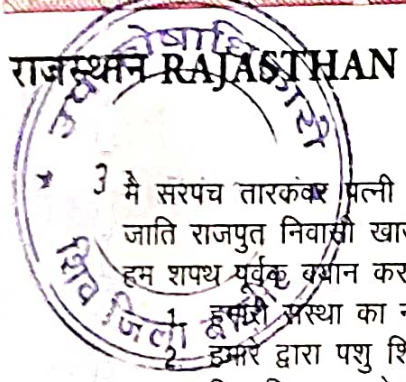 राजस्थान RAJASTHAN
उप कोषाधिकारी
3 मै सरपंच तारकंवर पत्नी
जाति राजपुत निवासी
हम शपथ पूर्वक बयान
1. हमारी संस्था का
2. हमारे द्वारा पशु
शिव जिला